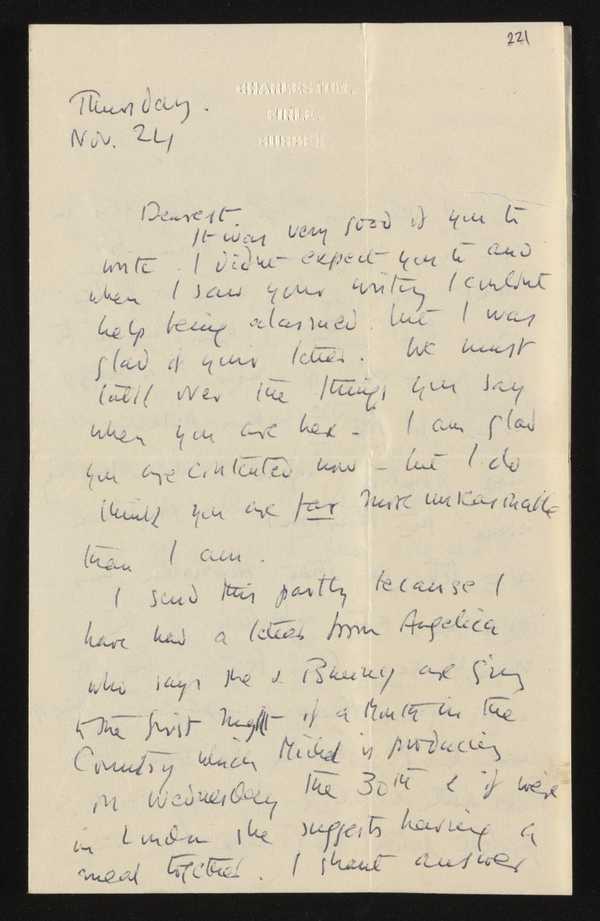 221
CHARLESTON,
FIRLE,
SUSSEX
Thursday.
Nov. 24
Dearest
It was very good of you to
write. I didnt expect you to and
when I saw your writing I couldnt
help being alarmed. but I was
glad of your letter. We must
talk over the things you say
when you are here - I am glad
you are contented now - but I do
think you are far more unreasonable
than I am.
I send this partly because I
have had a letter from Angelica
who says she & Bunny are going
to the first night of a Month in the
Country which Michel is producing
on Wednesday the 30th & if we're
in London she suggests having a
meal together. I shant answer